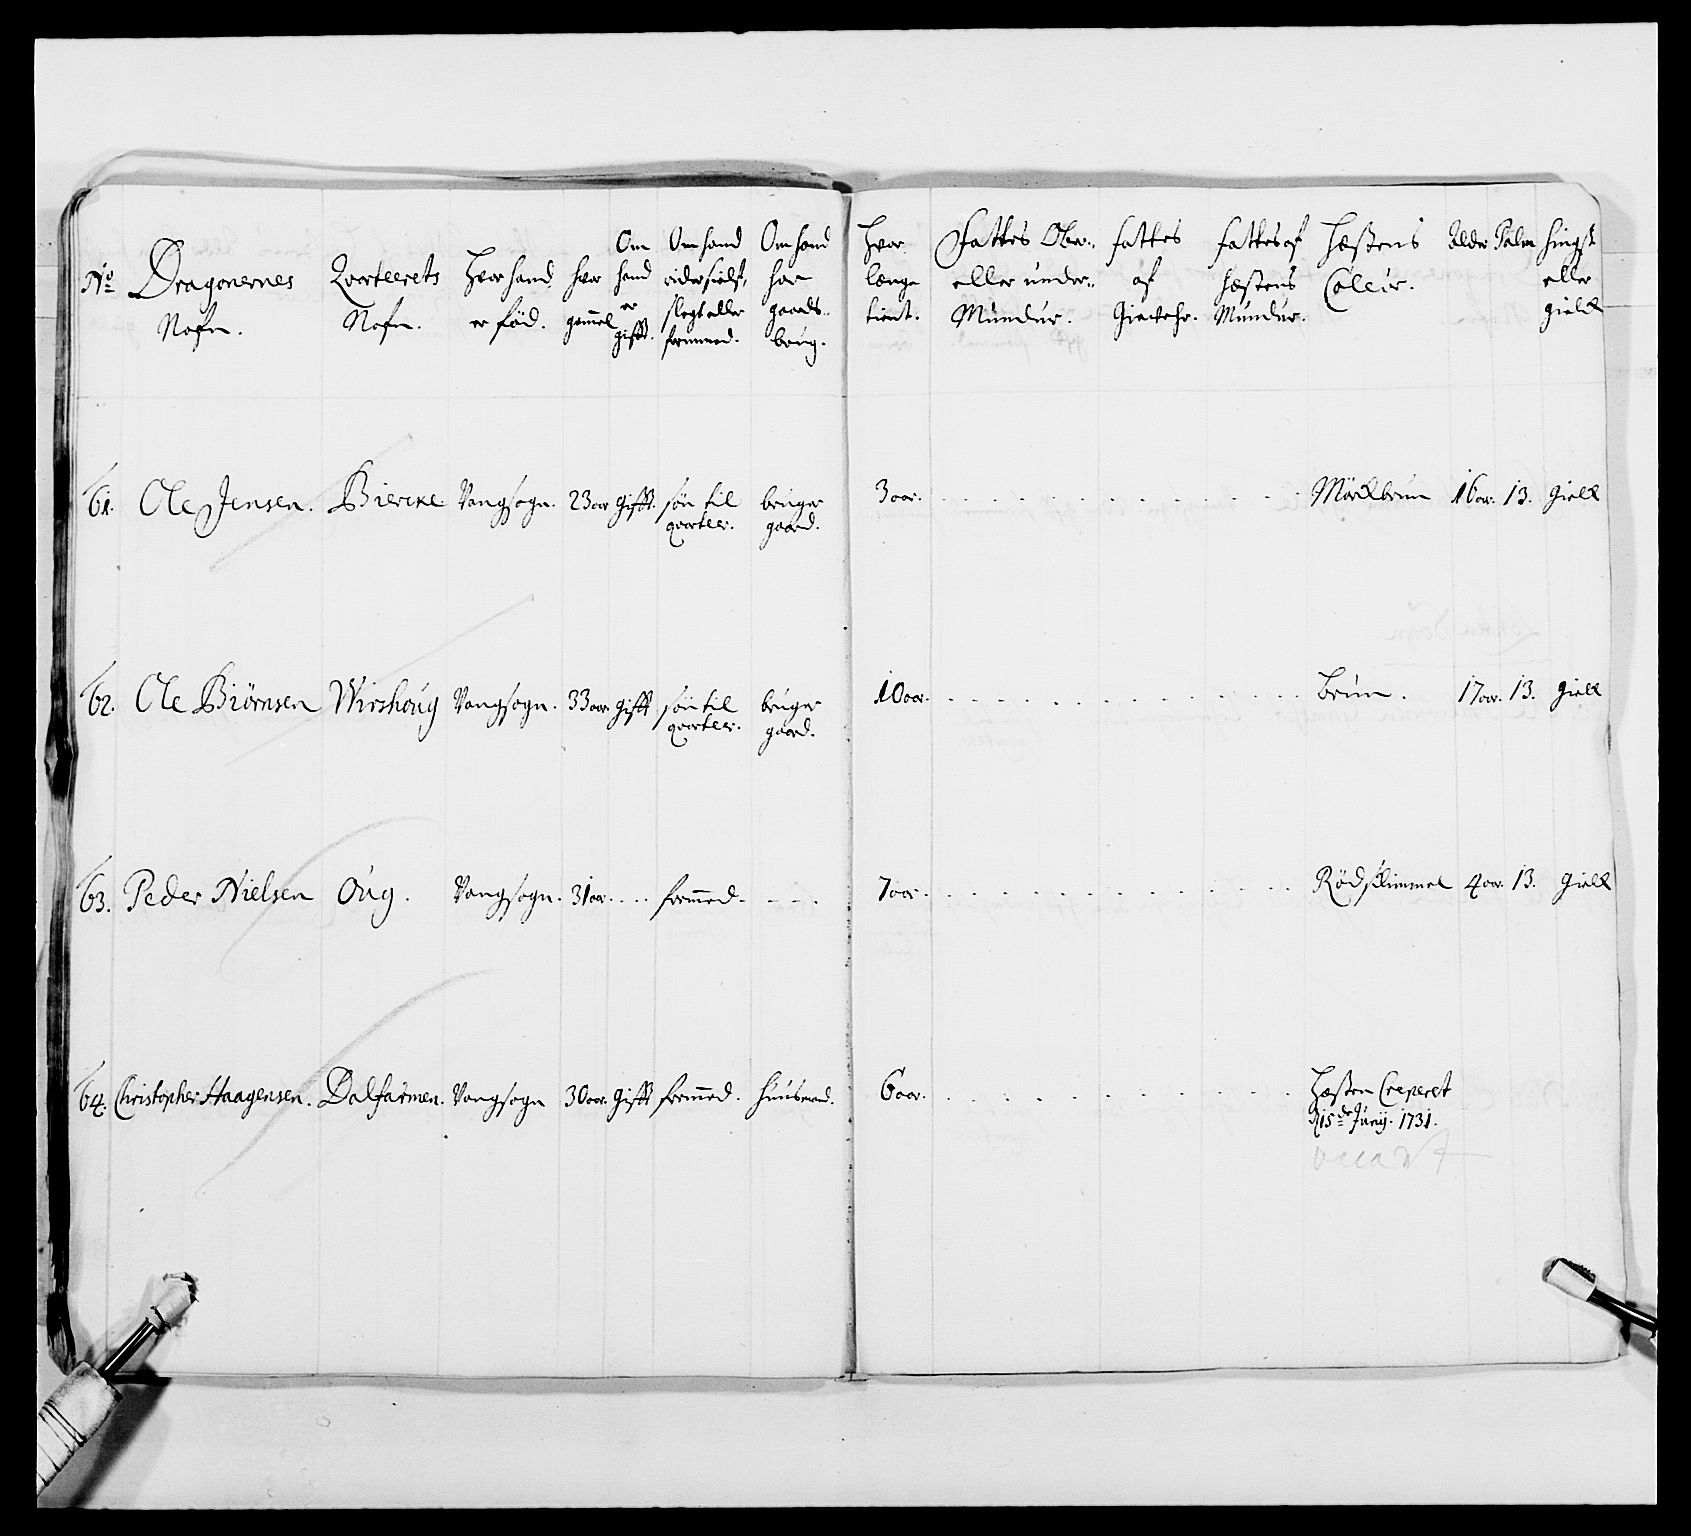 No Dragonernes Nafn. Qvarteerets Nafn. Hvor hand er föd. hvor gammel Om hand er gifft. Om hand rider sielf, slegt eller fremmed. Om hand har gaards.. brug. Hvor længe tient. Fattes Ober.. eller under.. Mundur. fattes af Giewehr. fattes af hæstens Mundur. Hæstens Coleur. Alder Palm hingst eller gield
61. Ole Jensen. Biercke Vangsogn. 23 aar gifft. søn til qvarteer. bruger gaard. 3 aar. Mörckbrun 16 aar. 13. gield
62. Ole Biörnsen Wirshoug Vangsogn. 33 aar. gifft søn til qvarteer. bruger gaard. 10 aar. brun. 17 aar. 13. gield
63. Peder Nielsen Oug. Vangsogn. 31 aar. fremmed. 7 aar. Rödskimmel 4 aar. 13. gield
64. Christopher Haagensen. Dalfarmen. Vangsogn 30 aar. gifft fremmed. huusmand. 6 aar. Hæsten Creperet
d 15de Junij. 1731.
vacant